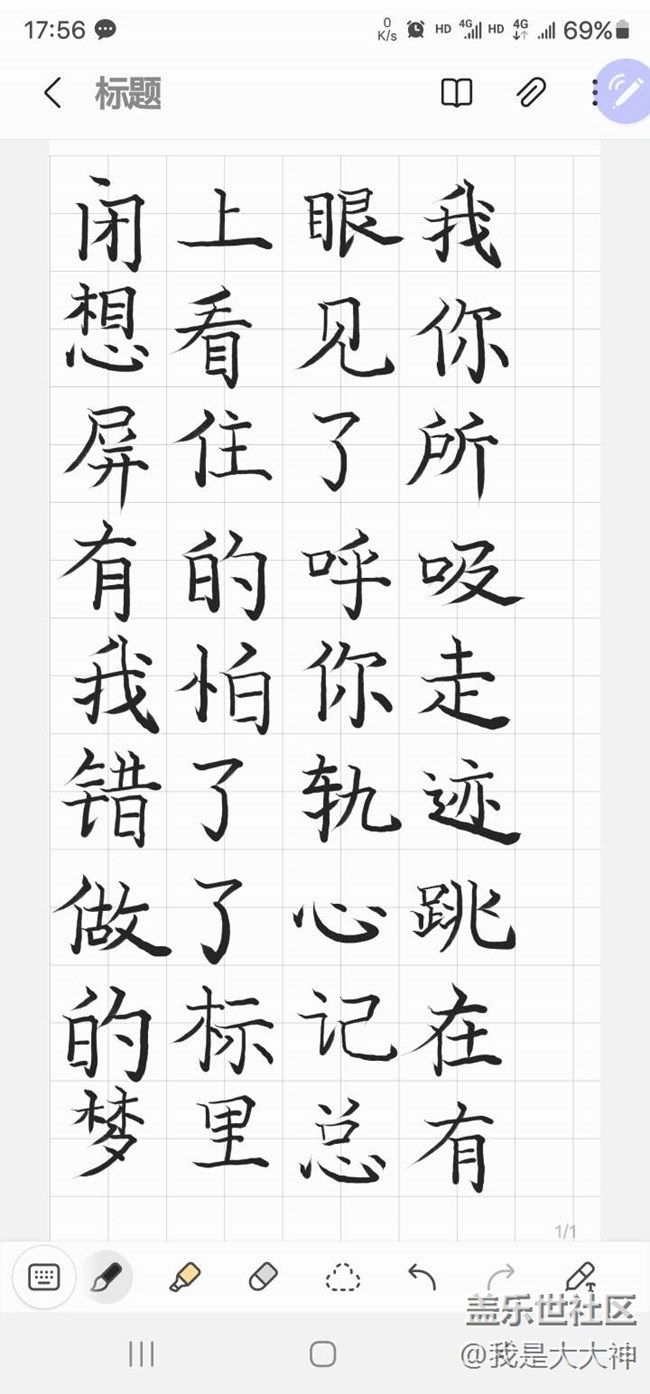 17:56 0 K/s HD 4G HD 4G 69%
标题
闭上眼我
想看见你
屏住了所
有的呼吸
我怕你走
错了轨迹
做了心跳
的标记在
梦里总有
1/1
T
盖乐世社区
@我是大大神